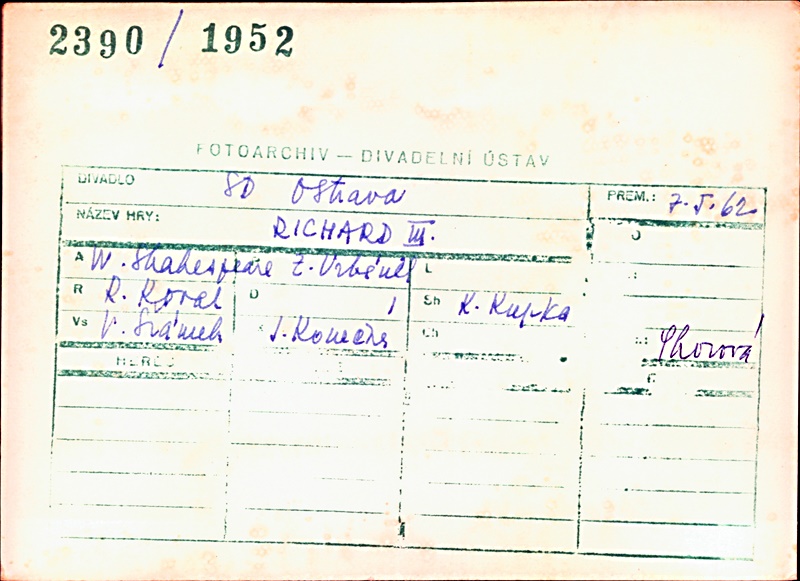 2390 / 1952
FOTOARCHIV — DIVADELNÍ ÚSTAV
DIVADLO SD Ostrava PREM.: 7.5.62
NÁZEV HRY: RICHARD III. O
A W. Shakespeare L
R R. Koval D Sh K. Kupka
Vs V. Šrámek J. Konečná Ch Skorová
HERCI